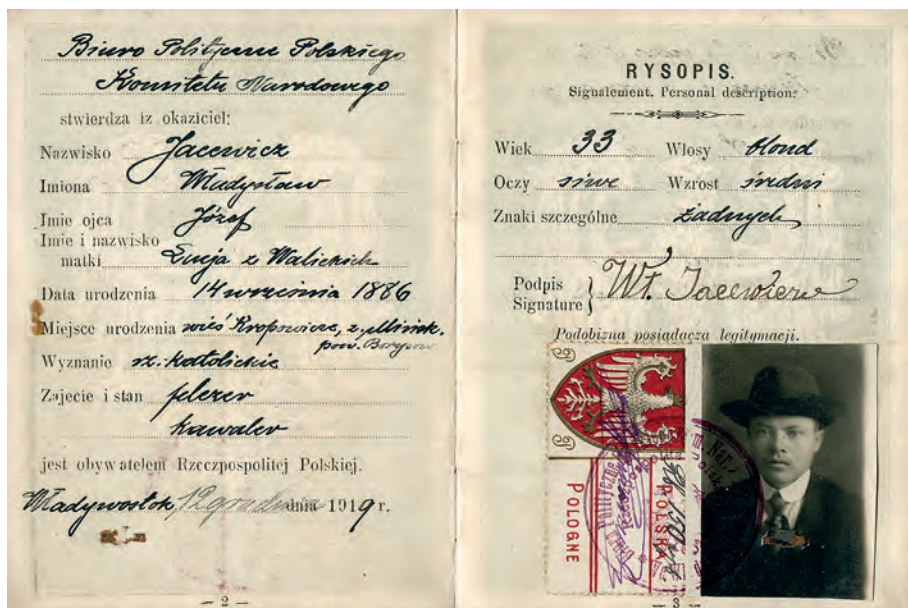 Biuro Polityczne Polskiego
Komitetu Narodowego
stwierdza iż okaziciel:
Nazwisko Jacewicz
Imiona Władysław
Imie ojca Józef
Imie i nazwisko
matki z Walickich
Data urodzenia 14 września 1886
Miejsce urodzenia wieś z. Mińsk.
pow. Borysow.
Wyznanie rz.-katolickie
Zajecie i stan felczer
kawaler
jest obywatelem Rzeczpospolitej Polskiej.
Władywostok, 12 grudnia dnia 1919 r.
— 2 —
RYSOPIS.
Signalement. Personal description:
Wiek 33 Wlosy blond
Oczy siwe Wzrost średni
Znaki szczególne żadnych
Podpis
Signature } Wł. Jacewicz
Podobizna posiadacza legitymacji.
POLSKA
POLOGNE
— 3 —